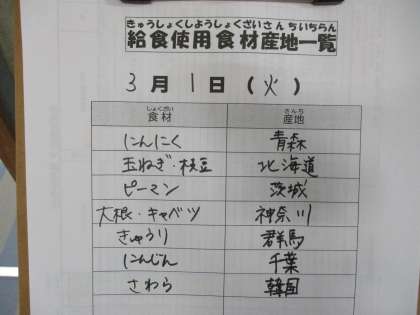 きゅうしょくしようしょくざいさんちいちらん
給食使用食材産地一覧
3月1日(火)
しょくざい さんち
食材 産地
にんにく 青森
玉ねぎ・枝豆 北海道
ピーマン 茨城
大根・キャベツ 神奈川
きゅうり 群馬
にんじん 千葉
さわら 韓国